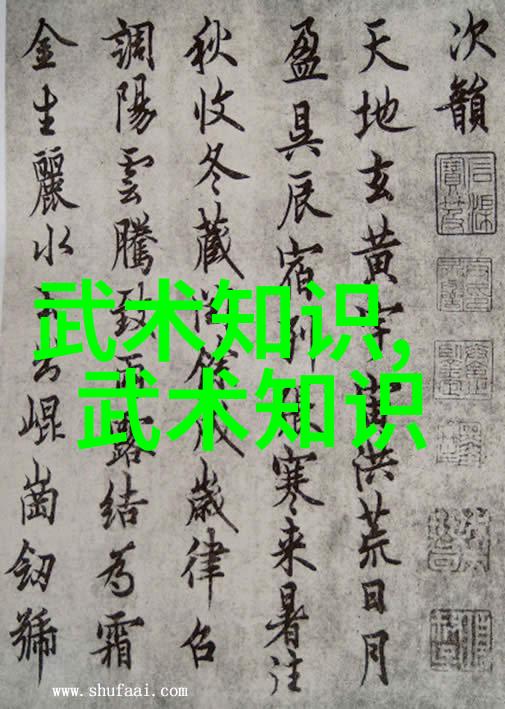 次韻
天地玄黄宇宙洪荒日月
盈昃辰宿列張寒来暑往
秋收冬藏閏餘成歲律召
調陽雲騰致雨露結為霜
金生麗水玉出崐崗劒號
武术知识,
武术知识
www.shufaai.com